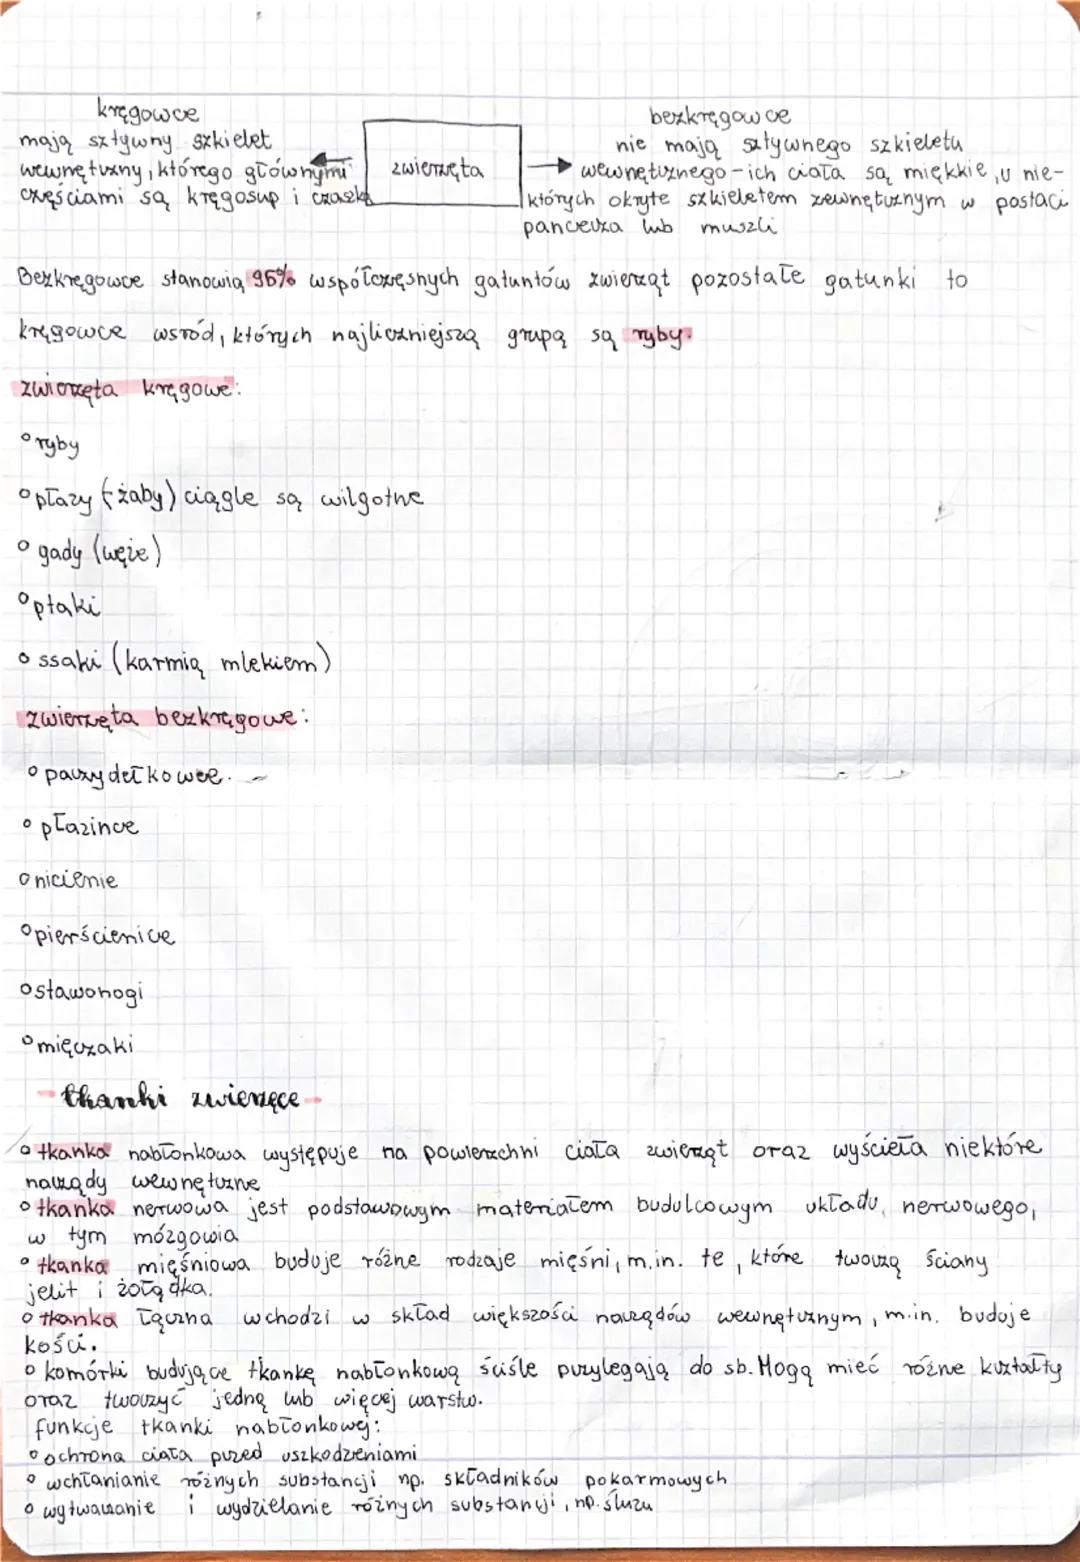 kręgowce
mają sztywny szkielet
wewnętrzny, którego głównymi
częściami są kręgosup i czaszka
zwierzęta
bezkręgowce
nie mają sztywnego szkieletu
wewnętrznego - ich ciała są miękkie, u nie-
których okryte szkieletem zewnętrznym w postaci
pancerza lub muszli
Bezkręgowce stanowią 96% współczesnych gatuntów zwierząt pozostałe gatunki to
kręgowce wsród, których najliczniejszą grupą są ryby.
zwierzęta kręgowe:
° ryby
° płazy (-żaby) ciągle są wilgotne
° gady (węże)
° ptaki
° ssaki (karmią mlekiem)
zwierzęta bezkręgowe:
° parzydełkowce.
° płazince
° nicienie
° pierścienice
° stawonogi
° mięczaki
- tkanki zwierzęce -
° tkanka nabłonkowa występuje na powierzchni ciała zwierząt oraz wyścieła niektóre
narządy wewnętrzne
° tkanka nerwowa jest podstawowym materiałem budulcowym układu nerwowego,
w tym mózgowia
° tkanka mięśniowa buduje różne rodzaje mięśni, m.in. te, które tworzą ściany
jelit i żołądka.
° tkanka łączna wchodzi w skład większości narządów wewnętrznym, m.in. buduje
kości.
° komórki budujące tkankę nabłonkową ściśle przylegają do sb. Mogą mieć różne kształty
oraz tworzyć jedną lub więcej warstw.
funkcje tkanki nabłonkowej:
° ochrona ciała przed uszkodzeniami
° wchłanianie różnych substancji np. składników pokarmowych
° wytwarzanie i wydzielanie różnych substancji, np. śluzu